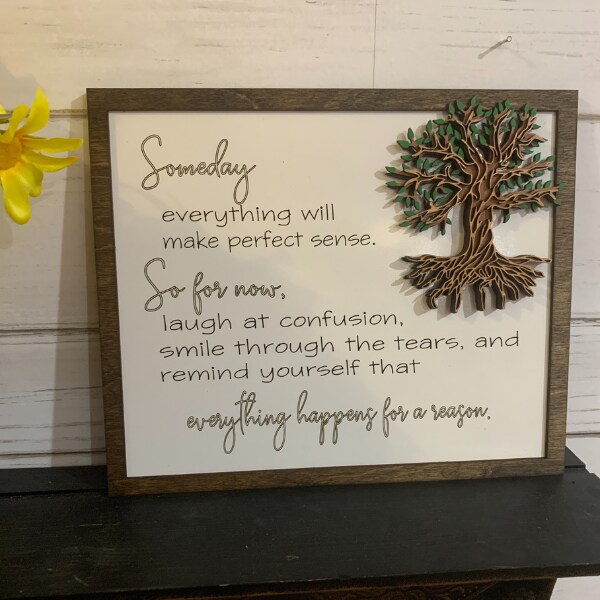 Someday
everything will
make perfect sense.
So for now,
laugh at confusion,
smile through the tears, and
remind yourself that
everything happens for a reason.